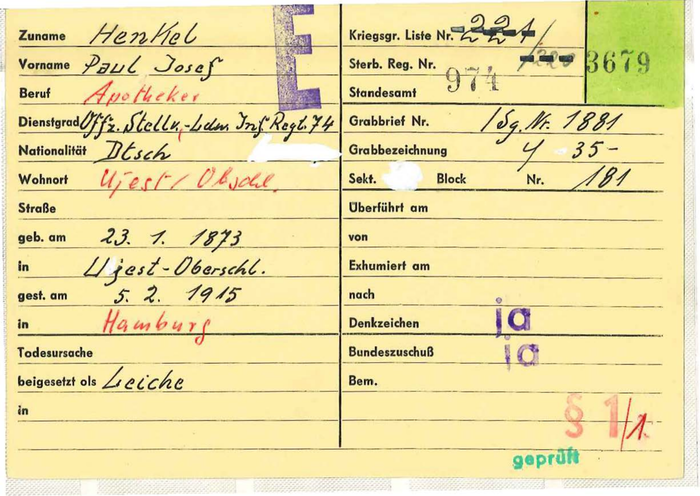 E
Zuname Henkel
Vorname Paul Josef
Beruf Apotheker
Dienstgrad Offz. Stellv.-Ldw. Inf. Regt. 74
Nationalität Dtsch
Wohnort Ujest / Obschl.
Straße
geb. am 23. 1. 1873
in Ujest-Oberschl.
gest. am 5. 2. 1915
in Hamburg
Todesursache
beigesetzt als Leiche
in
Kriegsgr. Liste Nr. 221/
3679
Sterb. Reg. Nr. 974
Standesamt
Grabbrief Nr. 1881
Grabbezeichnung Y 35-
Sekt. Block Nr. 181
Überführt am
von
Exhumiert am
nach
Denkzeichen ja
Bundeszuschuß ja
Bem.
§ 1/1.
geprüft